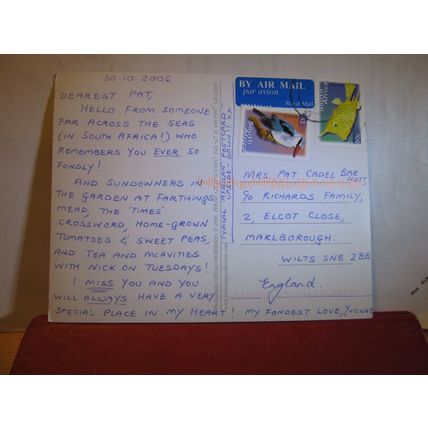 30.10.2006
DEAREST PAT,
HELLO FROM SOMEONE
FAR ACROSS THE SEAS
(IN SOUTH AFRICA!) WHO
REMEMBERS YOU EVER SO
FONDLY!
AND SUNDOWNERS IN
THE GARDEN AT FARTHINGS
MEAD, THE 'TIMES'
CROSSWORD, HOME-GROWN
TOMATOES & SWEET PEAS,
AND TEA AND MCAVITIES
WITH NICK ON TUESDAYS!
I MISS YOU AND YOU
WILL ALWAYS HAVE A VERY
SPECIAL PLACE IN MY HEART! MY FONDEST LOVE, YVONNE
TYPICAL AFRICAN POSTCARD -
UPSIDE-DOWN! XX
BY AIR MAIL
par avion
Royal Mail
MRS PAT CADEL BAR
NETT,
c/o RICHARDS FAMILY,
2, ELCOT CLOSE,
MARLBOROUGH.
WILTS. SN8 2BB
England.